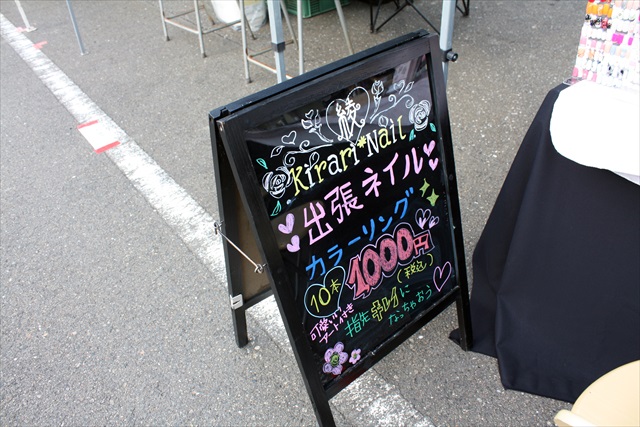 綾
Kirari*Nail
出張ネイル
カラーリング
10本 1000円
(税込)
可愛い
アート付き
指先キレイに
なっちゃおう